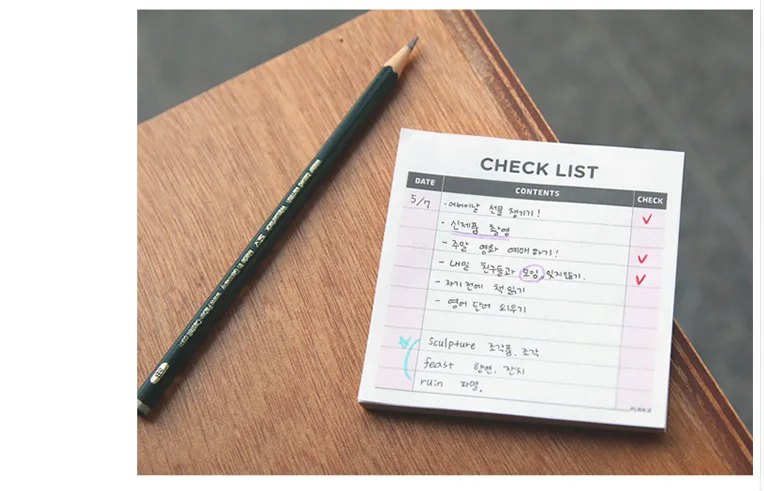 CHECK LIST
DATE CONTENTS CHECK
5/7 - 어버이날 선물 챙기기!
- 신제품 촬영
- 주말 영화 예매하기!
- 내일 친구들과 모임 잊지말기.
- 자기 전에 책 읽기
- 영어 단어 외우기
sculpture 조각품, 조각
feast 향연, 잔치
ruin 파멸.